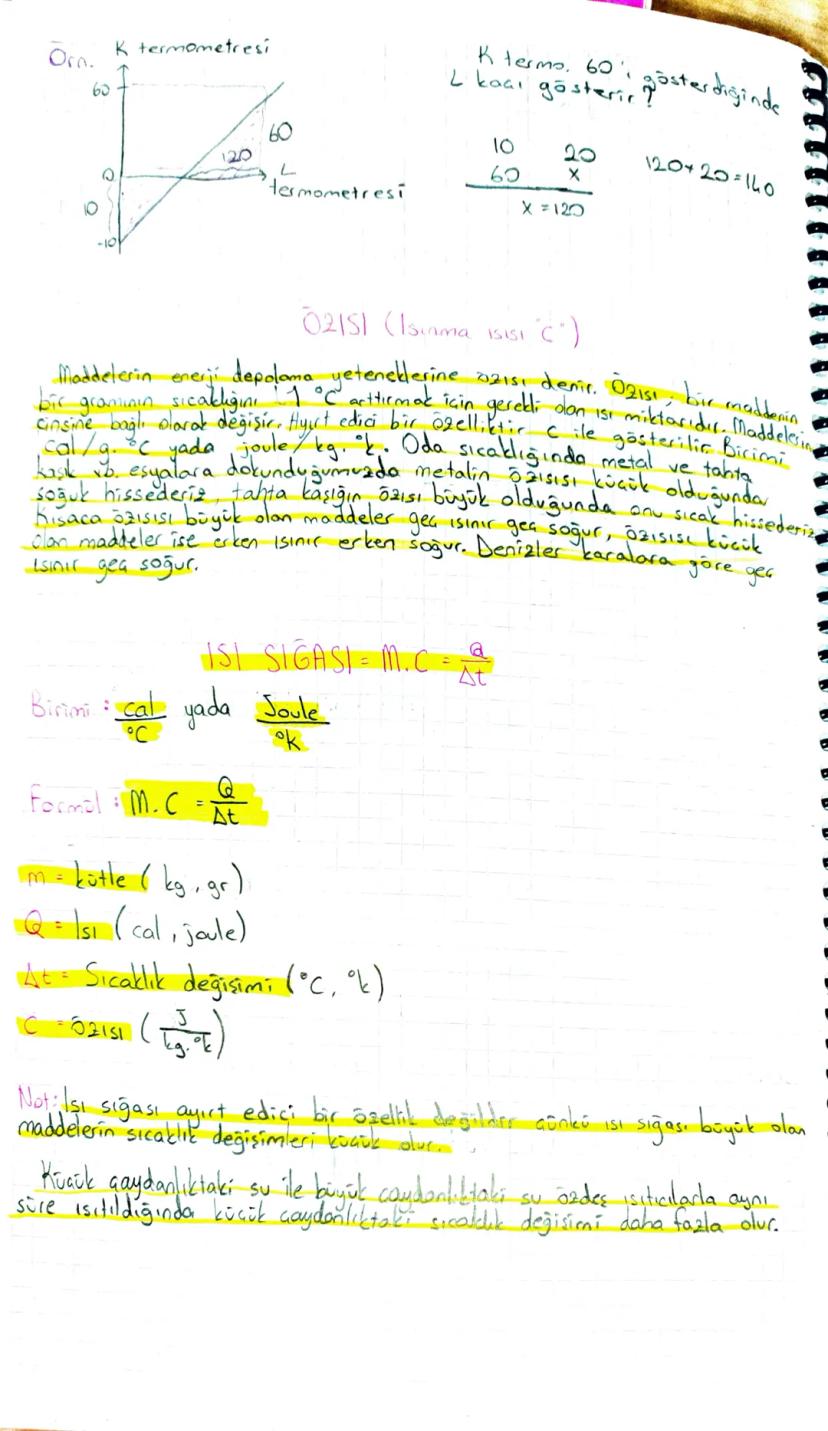 Örn. K termometresi
60
0
10
-10
60
120
L
termometresi
K termo. 60'ı gösterdiğinde
L kaçı gösterir?
10 20
60 x
x = 120
120+20=140
ÖZISI (Isınma ısısı "C")
Maddelerin enerji depolama yeteneklerine özısı denir. Özısı, bir maddenin
bir gramının sıcaklığını 1 °C arttırmak için gerekli olan ısı miktarıdır. Maddelerin
cinsine bağlı olarak değişir. Ayırt edici bir özelliktir C ile gösterilir. Birimi
cal/g.°C yada joule/kg.°k. Oda sıcaklığında metal ve tahta
kaşık vb. eşyalara dokunduğumuzda metalin özısısı küçük olduğunda
soğuk hissederiz, tahta kaşığın özısı büyük olduğunda onu sıcak hissederiz
Kısaca özısısı büyük olan maddeler geç ısınır geç soğur, özısısı küçük
olan maddeler ise erken ısınır erken soğur. Denizler karalara göre geç
ısınır geç soğur.
ISI SIĞASI = M.C = Q/Δt
Birimi : cal/°C yada Joule/°K
Formül : M.C = Q/Δt
m = kütle (kg, gr)
Q = Isı (cal, joule)
Δt = Sıcaklık değişimi (°C, °k)
C = Özısı (J/kg.°k)
Not: Isı sığası ayırt edici bir özellik değildir çünkü ısı sığası büyük olan
maddelerin sıcaklık değişimleri küçük olur.
Küçük çaydanlıktaki su ile büyük çaydanlıktaki su özdeş ısıtıcılarla aynı
süre ısıtıldığında küçük çaydanlıktaki sıcaklık değişimi daha fazla olur.